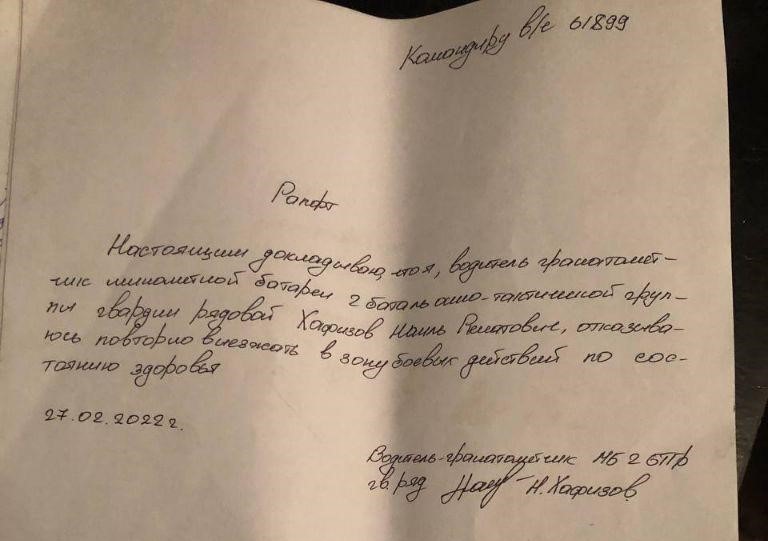 Командиру в/ч 61899
Рапорт
Настоящим докладываю, что я, водитель гранатомёт-
чик миномётной батареи 2 батальонно-тактической груп-
пы гвардии рядовой Хафизов Наиль Ренатович, отказыва-
юсь повторно выезжать в зону боевых действий по сос-
тоянию здоровья
27.02.2022г.
Водитель-гранатомётчик МБ 2
гв. ряд Н.Хафизов